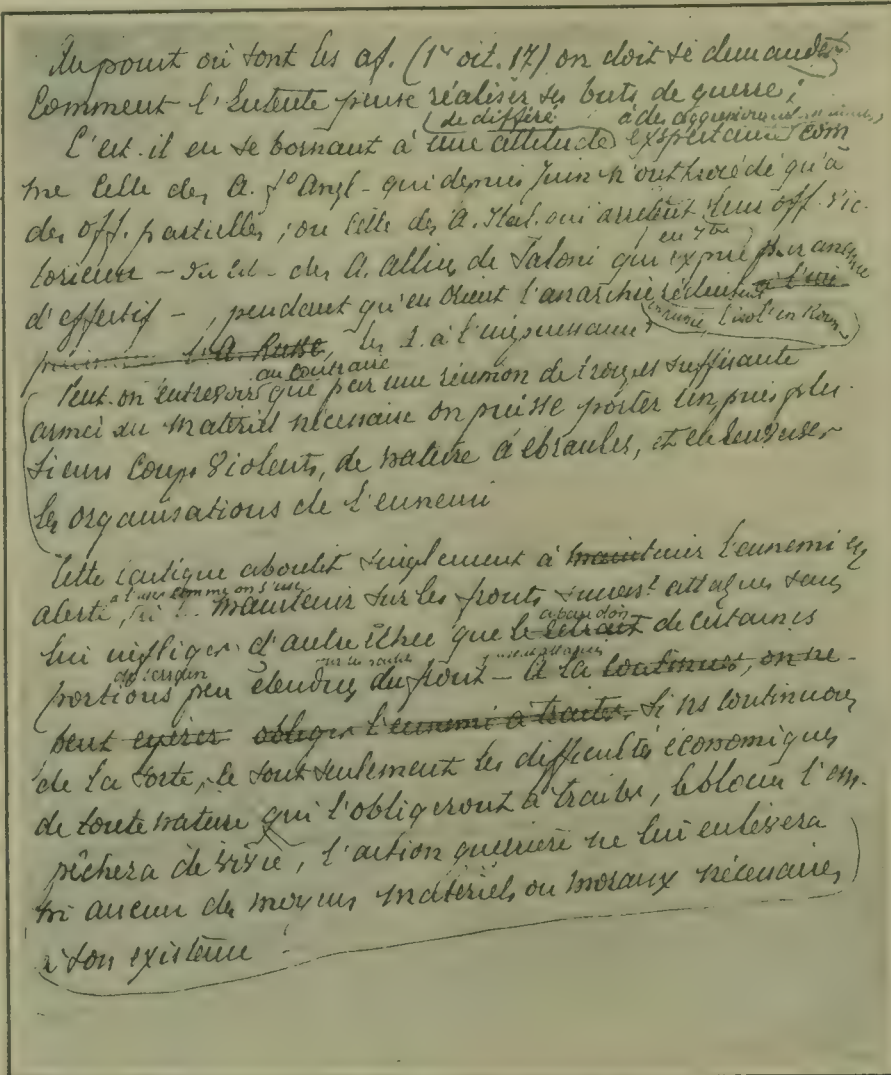 Au point où sont les af. (1er oct. 17) on doit se demander
Comment l'Entente pense réaliser ses buts de guerre ;
de différé à des
C'est-il en se bornant à une attitude expectative com
me celle des A. fo Angl - qui depuis Juin n'ont procédé qu'à
des off. partielles, ou celle des A. Ital. qui arrêtent leur off. vic-
en 7bre
torieuse - ou est - des A. alliées de Saloni qui par
d'effectif -, pendant qu'en Orient l'anarchie réduisait à l'im
l'A. Russe, les à l'impuissance
au contraire
Peut-on entrevoir que par une réunion de troupes suffisante
armée du matériel nécessaire on puisse porter un, puis plu
sieurs coups violents, de nature à ébranler, et
les organisations de l'ennemi
Cette tactique aboutit simplement à maintenir l'ennemi en
comme on
alerte, maintenir sur les fronts attaques sans
abandon
lui infliger d'autre échec que le retrait de certaines
de terrain
portions peu étendues du front - A la continuer, on ne
peut espérer obliger l'ennemi à traiter. Si ns continuons
de la sorte, ce sont seulement les difficultés économiques
de toute nature qui l'obligeront à traiter, le blocus l'em-
pêchera de vivre, l'action guerrière ne lui enlèvera
ni aucun des moyens matériels ou moraux nécessaires
à son existence